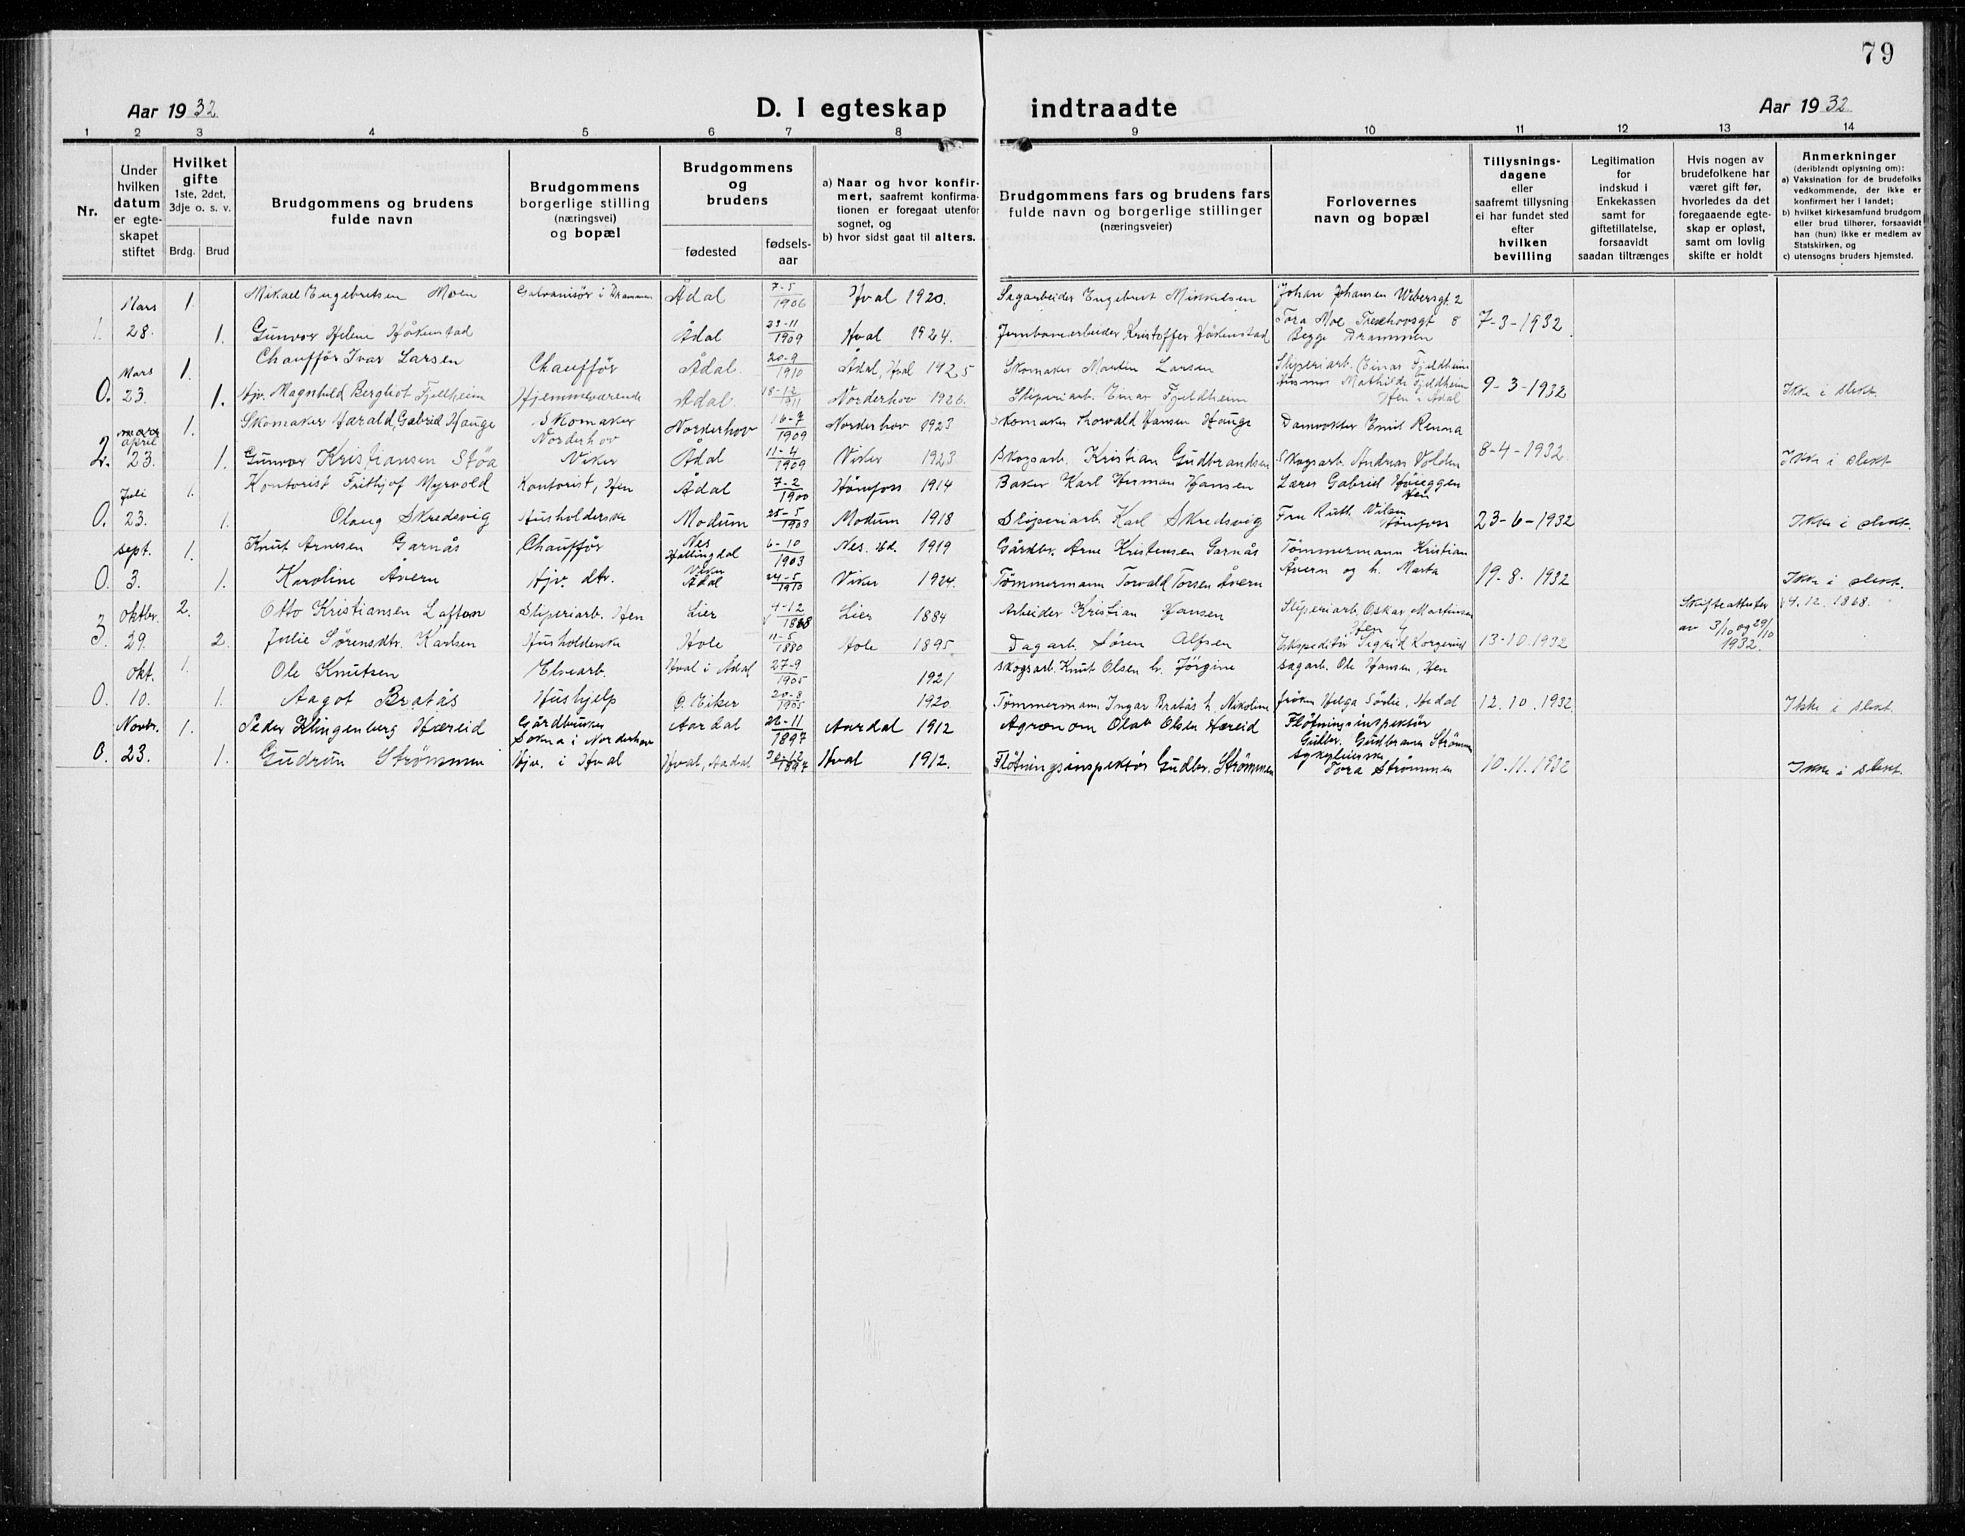 79
Aar 1932
D. I egteskap indtraadte
Aar 1932
1 2 3 4 5 6 7 8 9 10 11 12 13 14
Nr.
Under
hvilken
datum
er egte-
skapet
stiftet
Hvilket
gifte
1ste, 2det,
3dje o. s. v.
Brdg. Brud
Brudgommens og brudens
fulde navn
Brudgommens
borgerlige stilling
(næringsvei)
og bopæl
Brudgommens
og
brudens
fødested
fødsels-
aar
a) Naar og hvor konfir-
mert, saafremt konfirma-
tionen er foregaat utenfor
sognet, og
b) hvor sidst gaat til alters.
Brudgommens fars og brudens fars
fulde navn og borgerlige stillinger
(næringsveier)
Forlovernes
navn og bopæl
Tillysnings-
dagene
eller
saafremt tillysning
ei har fundet sted
efter
hvilken
bevilling
Legitimation
for
indskud i
Enkekassen
samt for
giftetillatelse,
forsaavidt
saadan tiltrænges
Hvis nogen av
brudefolkene har
været gift før,
hvorledes da det
foregaaende egte-
skap er opløst,
samt om lovlig
skifte er holdt
Anmerkninger
(deriblandt oplysning om):
a) Vaksination for de brudefolks
vedkommende, der ikke er
konfirmert her i landet;
b) hvilket kirkesamfund brudgom
eller brud tilhører, forsaavidt
han (hun) ikke er medlem av
Statskirken, og
c) utensogns bruders hjemsted.
Mars 1. Mikael Engebretsen Moen Galvanisør i Drammen Ådal 7-5 1906 Hval 1920. Sagarbeider Engebret Mikkelsen Johan Johansen Webersgt. 2
1. 28. 1. Gunvor Helene Håkenstad Ådal 23-11 1909 Hval 1924. Jernbanearbeider Kristoffer Håkenstad Tora Moe 8 Begge Drammen 7-3-1932
Mars 1. Chauffør Ivar Larsen Chauffør Ådal 20-9 1910 Ådal, Hval 1925 Skomaker Martin Larsen Sliperiarb. Einar Fjeldheim
0. 23. 1. Hjv. Magnhild Berghot Fjellheim Hjemmeværende Ådal 18-12 1911 Norderhov 1926. Sliperiarb. Einar Fjeldheim Husmor Mathilde Fjeldheim Hen i Ådal 9-3-1932 Ikke i slekt
mars april 1. Skomaker Harald, Gabriel Hauge Skomaker Norderhov Norderhov 16-7 1909 Norderhov 1923 Skomaker Thorvald Hansen Hauge Damvokter Emil Renna
2. 23. 1. Gunvor Kristiansen Støa Viker Ådal 11-4 1909 Viker 1923 Skogsarb. Kristian Gudbrandsen Skogsarb. Andreas Volden 8-4-1932 Ikke i slekt
Juli 1. Kontorist Frithjof Myrvold Kontorist, Hen Ådal 7-2 1900 Hønefoss 1914 Baker Karl Herman Hansen Lærer Gabriel Hen
0. 23. 1. Olaug Skredsvig Husholderske Modum 25-5 1903 Modum 1918 Sliperiarb. Karl Skredsvig Fru Ruth Hønefoss 23-6-1932 Ikke i slekt.
sept. 1. Knut Arnesen Garnås Chauffør Nes Hallingdal 6-10 1903 Nes. Hd. 1919 Gårdbr. Arne Kristensen Garnås Tømmermann Kristian
0. 3. 1. Karoline Åvern Hjv. dtr. Viker Ådal 24-5 1910 Viker 1924. Tømmermann Torvald Torsen Åvern Åvern og h. Marta 19. 8. 1932 Ikke i slekt.
Oktbr. 2. Otto Kristiansen Lier 4-12 1868 Lier 1884 Sliperiarb. Hen Arbeider Kristian Hansen Sliperiarb. Oskar Martinsen Hen Skifteattester av 3/10 og 29/10 1932. 4. 12. 1868.
3. 29. 2. Julie Sørensdtr. Karlsen Husholderske Hole 11-5 1880 Hole 1895 Dagarb. Søren Alfsen Ekspeditør Sigrid 13-10.1932
Okt. 1. Ole Knutsen Elvearb. Hval i Ådal 27-9 1905 1921 Skogsarb. Knut Olsen h. Jørgine Sagarb. Ole Hansen, Hen
0. 10. 1. Aagot Bratås Hushjelp Ø. Eiker 20-8 1905 1920. Tømmermann. Ingar Bratås h. Nikoline frøken Helga Sørlie, Hedal 12. 10. 1932 Ikke i slekt.
Novbr. 1. Peder Klingenberg Hæreid Gårdbruker Sokna i Norderhov Aardal 26-11 1897 Aardal 1912 Agronom Olav Olsen Hæreid Fløtningsinspektør Gulbr. Gudbrand Strømmen
0. 23. 1. Gudrun Strømmen Hjv. i Hval Hval, Aadal 1897 Hval 1912. Fløtningsinspektør Gudbr. Strømmen Sykepleierske Tora Strømmen 10. 11. 1932 Ikke i slekt.